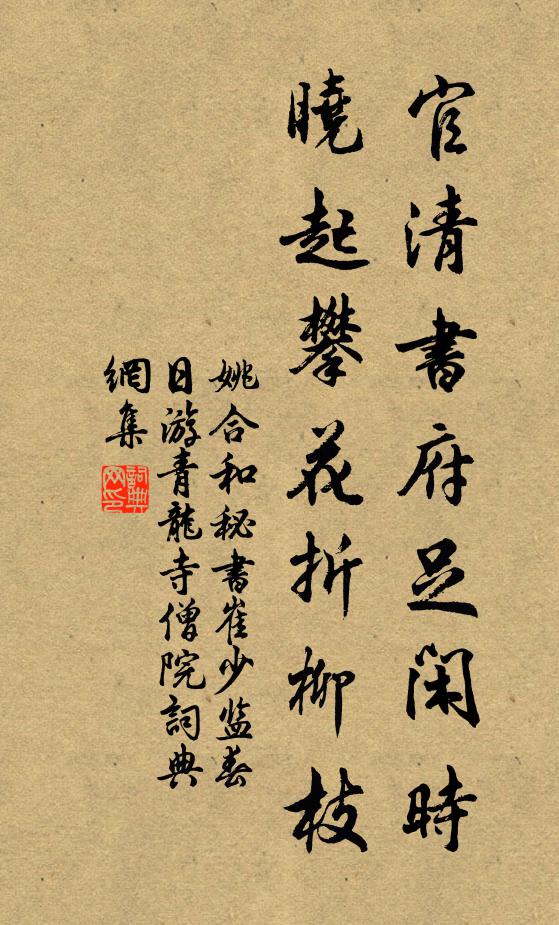 官清書府足閑時
曉起攀花折柳枝
姚合和秘書崔少監春
日游青龍寺僧院詞典
網集
詞典網印